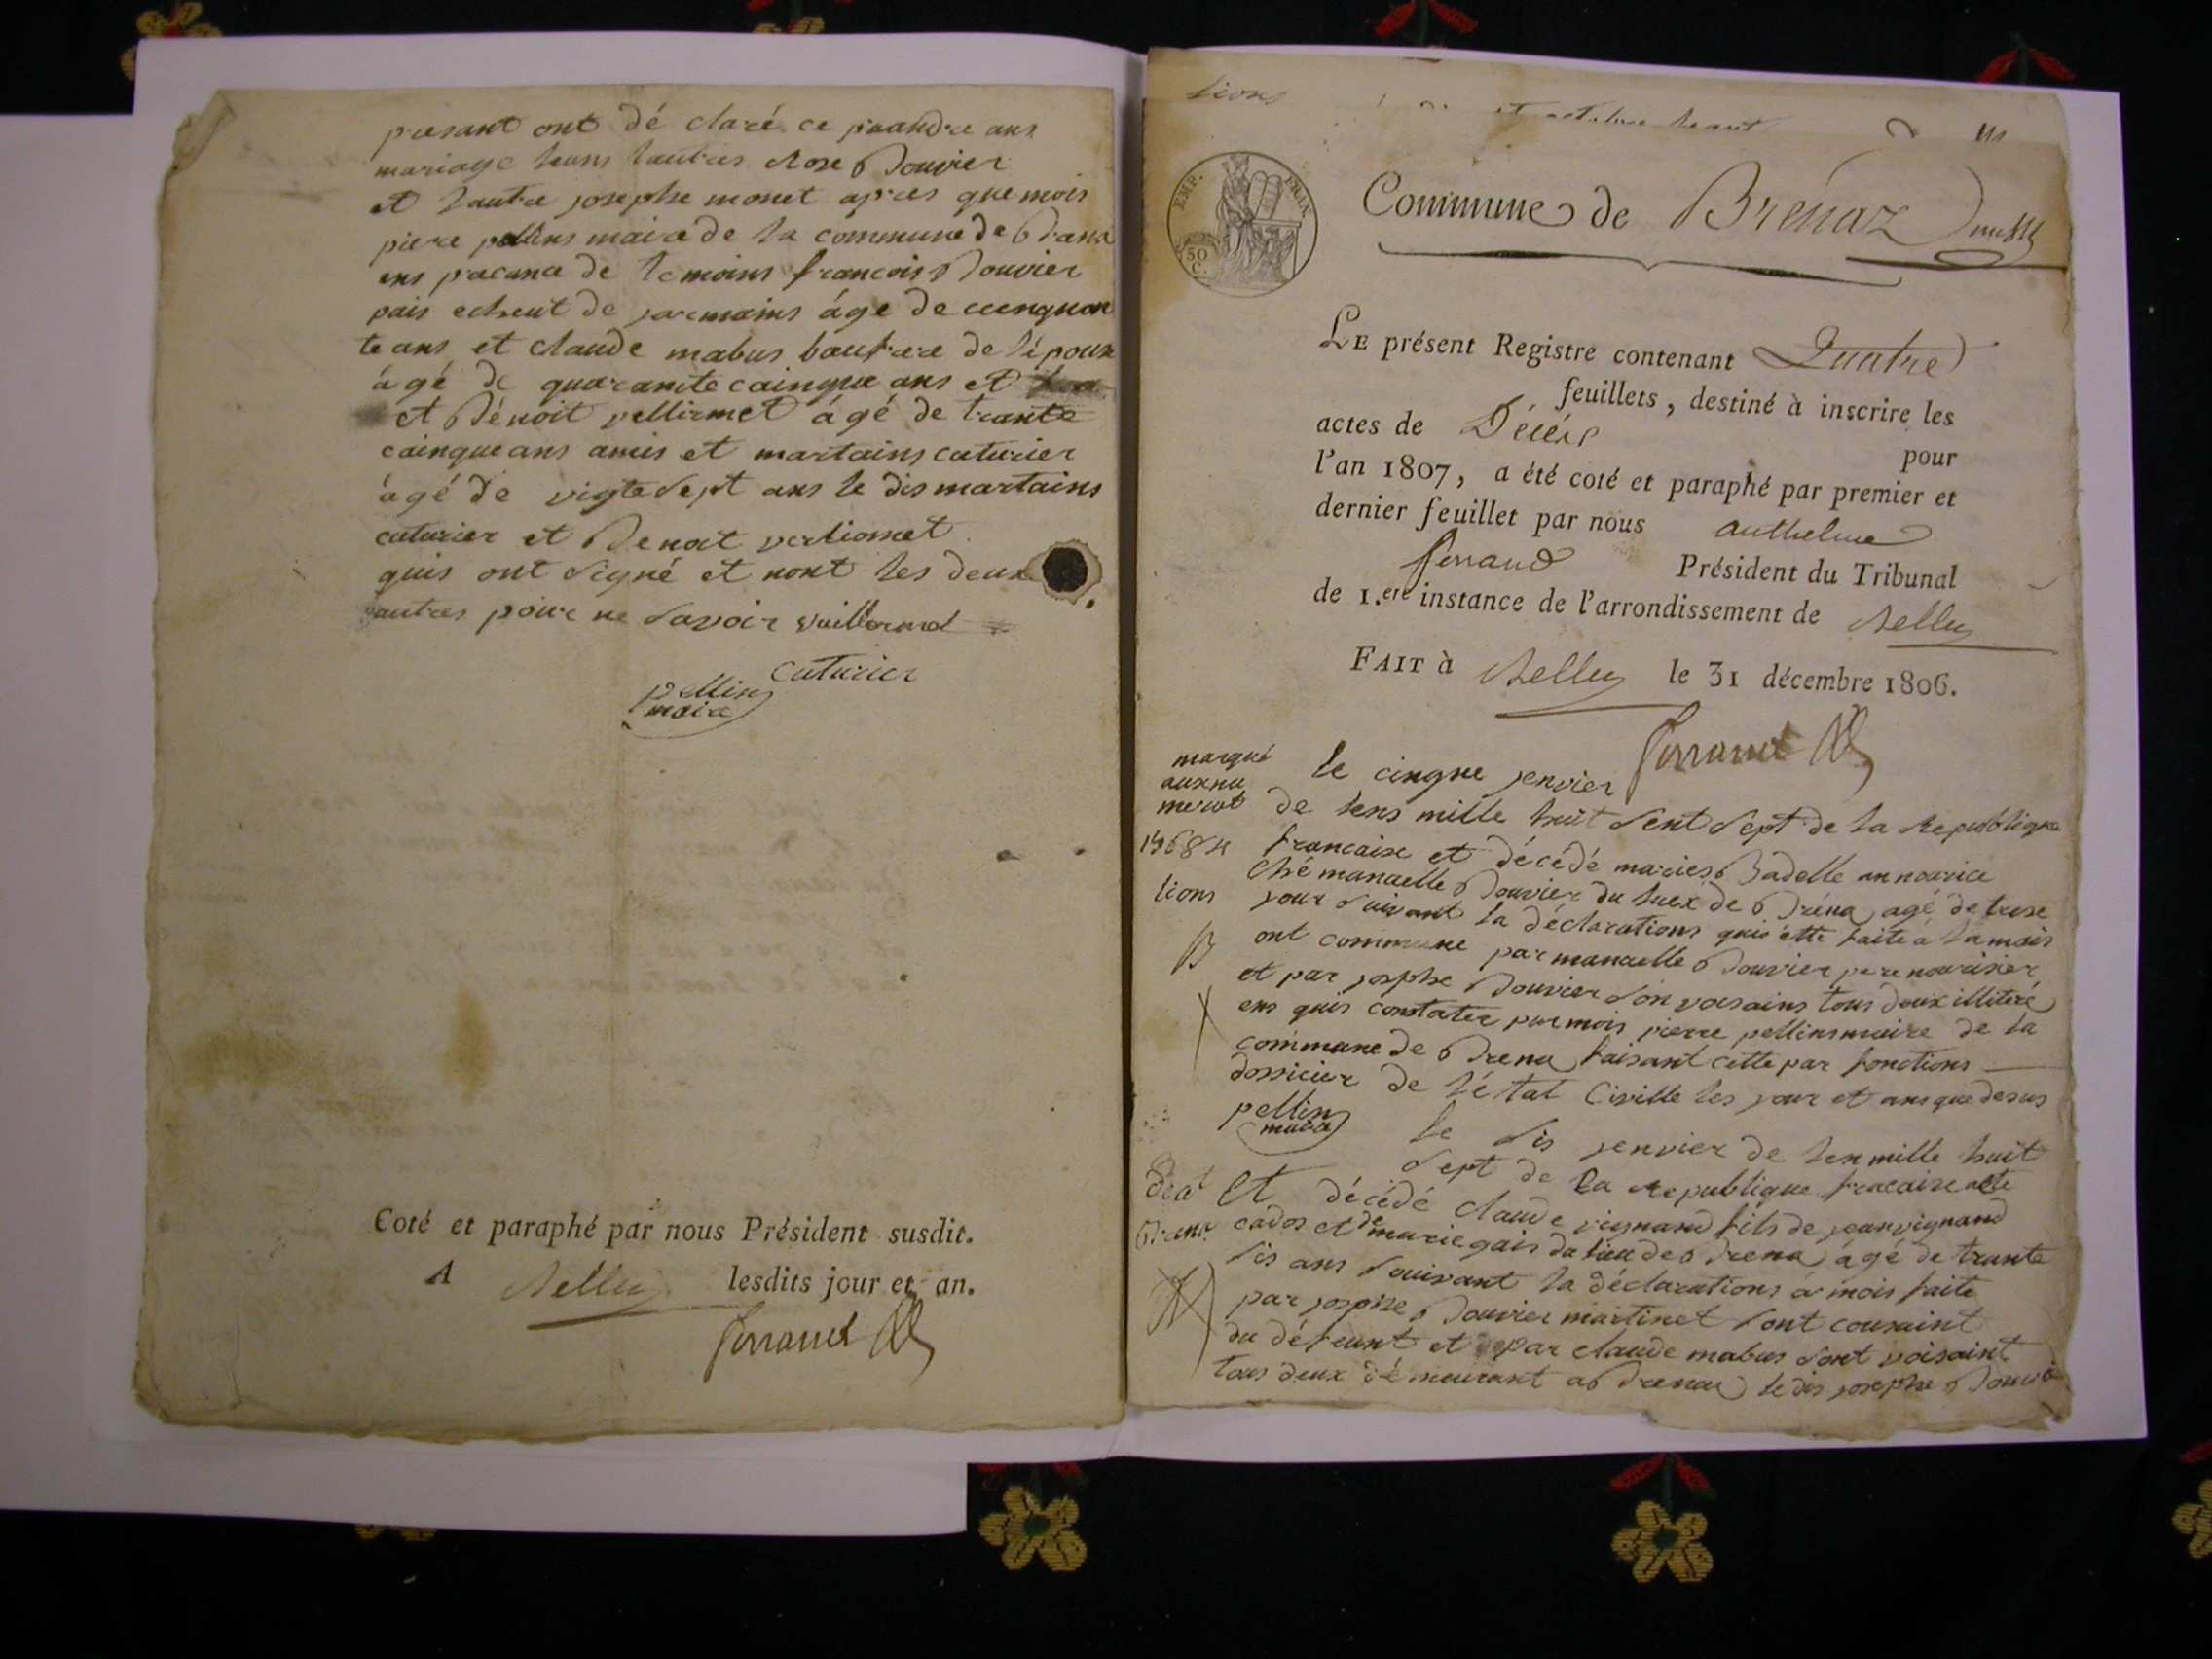 presant ont dé claré ce prandre ans
mariage leans lautres Rose Bouvier
et lautre josephe monet apres que mois
piere pellins maire de la commune de Brena
ens pracance de temoins francois Bouvier
pais de jarmains áge de cungnan
te ans et claude mabus baufrere de lépoux
ágé de quarante cainque ans et
et Bénoit vellirmet ágé de trante
cainque ans amis et martains cuturier
ágé de vigte sept ans le dis martains
cuturier et Benoit
quis ont signé et nont les deux
autres pour ne savoir
cuturier
pellins
maire
Coté et paraphé par nous Président susdit.
A Belley lesdits jour et an.
Ferrand
tions
et
Commune de Brénaz
EMP. FRAN.
50 C.
LE présent Registre contenant Quatre
feuillets, destiné à inscrire les
actes de Décès pour
l'an 1807, a été coté et paraphé par premier et
dernier feuillet par nous Anthelme
Ferrand Président du Tribunal
de 1.ere instance de l'arrondissement de Belley
FAIT à Belley le 31 décembre 1806.
Ferrand
marqué
aux nu
merot
le cinque jenvier
de lens mille huit sent sept de la Republique
francaise et décédé maries Badelle an nourice
ché manuelle Bouvier du luex de Bréna agé de trese
lions
jour suivant la déclarations quis ette faite a la mais
B
ont commune par manuelle Bouvier pere nourisier
et par josphe Bouvier son voisains tous deux illiteré
ens quis constater par mois pierre pellins maire de la
commune de Brena faisant cette par fonctions
dossicier de létat Civille les jour et ans que desus
pellins
maire
le sis jenvier de len mille huit
sept de la Republique fracaise
et décédé claude vignand fils de jean vignand
Brena
cados et de marie gais du lieu de Brena ágé de trante
sis ans souivant la déclarations a mois faite
par josphe Bouvier martinet sont cousaint
du défeunt et par claude mabus sont voisaint
tous deux démeurant a Brena le dis josephe Bouvie